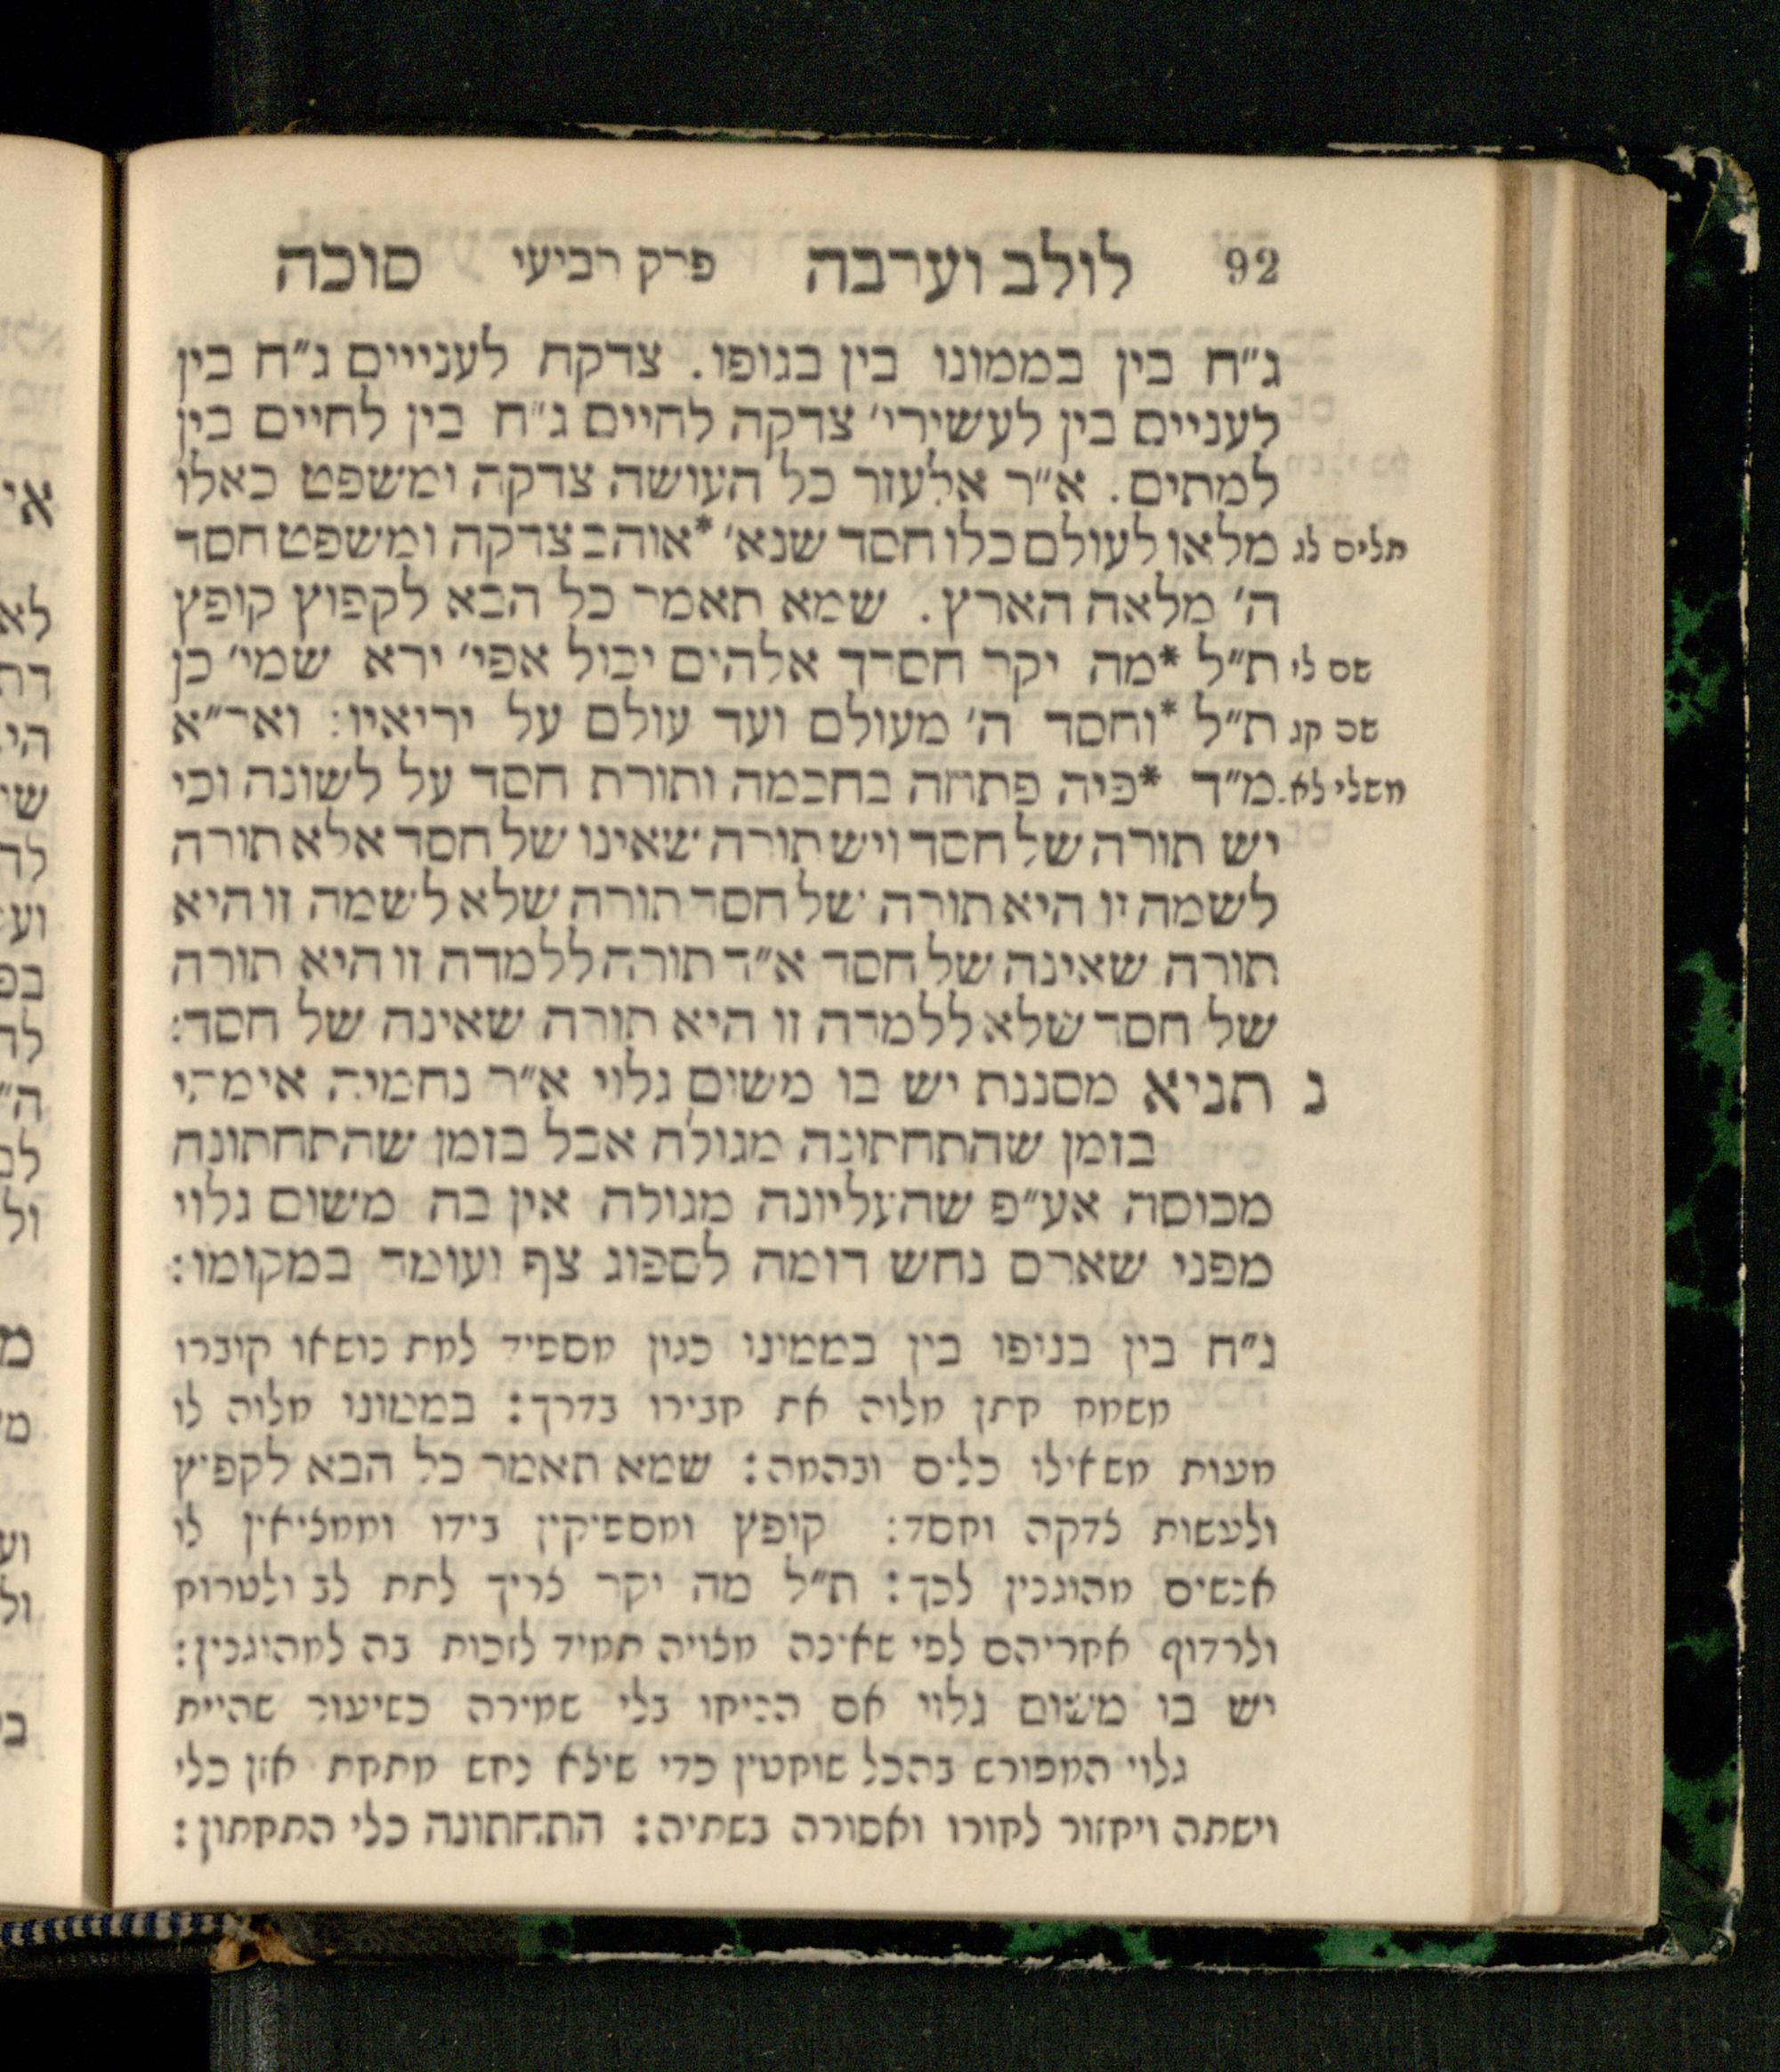 92 לולב וערבה פרק רביעי סוכה
ג״ח בין בממונו בין בגופו. צדקה לענייים ג״ח בין
לעניים בין לעשירי׳ צדקה לחיים ג״ח בין לחיים בין
למתים. א״ר אלעזר כל העושה צדקה ומשפט כאלו
תלים לג מלאו לעולם כלו חסד שנא׳ *אוהב צדקה ומשפט חסד
ה׳ מלאה הארץ. שמא תאמר כל הבא לקפוץ קופץ
שם לו ת״ל *מה יקר חסדך אלהים יכול אפי׳ ירא שמי׳ כן
שם קג ת״ל *וחסד ה׳ מעולם ועד עולם על יריאיו: ואר״א
משלי לא. מ״ד *פיה פתחה בחכמה ותורת חסד על לשונה וכי
יש תורה של חסד ויש תורה שאינו של חסד אלא תורה
לשמה זו היא תורה של חסד תורה שלא לשמה זו היא
תורה שאינה של חסד א״ד תורה ללמדה זו היא תורה
של חסד שלא ללמדה זו היא תורה שאינה של חסד:
ג תניא מסננת יש בו משום גלוי א״ר נחמיה אימתי
בזמן שהתחתונה מגולה אבל בזמן שהתחתונה
מכוסה אע״פ שהעליונה מגולה אין בה משום גלוי
מפני שארס נחש דומה לספוג צף ועומד במקומו:
ג״ח בין בגופו בין בממונו כגון מספיד למת נושאו קוברו
משמח חתן מלוה את חבירו בדרך: בממונו מלוה לו
מעות משאילו כלים ובהמה: שמא תאמר כל הבא לקפוץ
ולעשות צדקה וחסד: קופץ ומספיקין בידו וממציאין לו
אנשים מהוגנין לכך: ת״ל מה יקר צריך לתת לב ולטרוח
ולרדוף אחריהם לפי שאינה מצויה תמיד לזכות בה למהוגנין:
יש בו משום גלוי אם הניחו בלי שמירה כשיעור שהיית
גלוי המפורש בהכל שוחטין כדי שיצא נחש מתחת אזן כלי
וישתה ויחזור לחורו ואסורה בשתיה: התחתונה כלי התחתון: